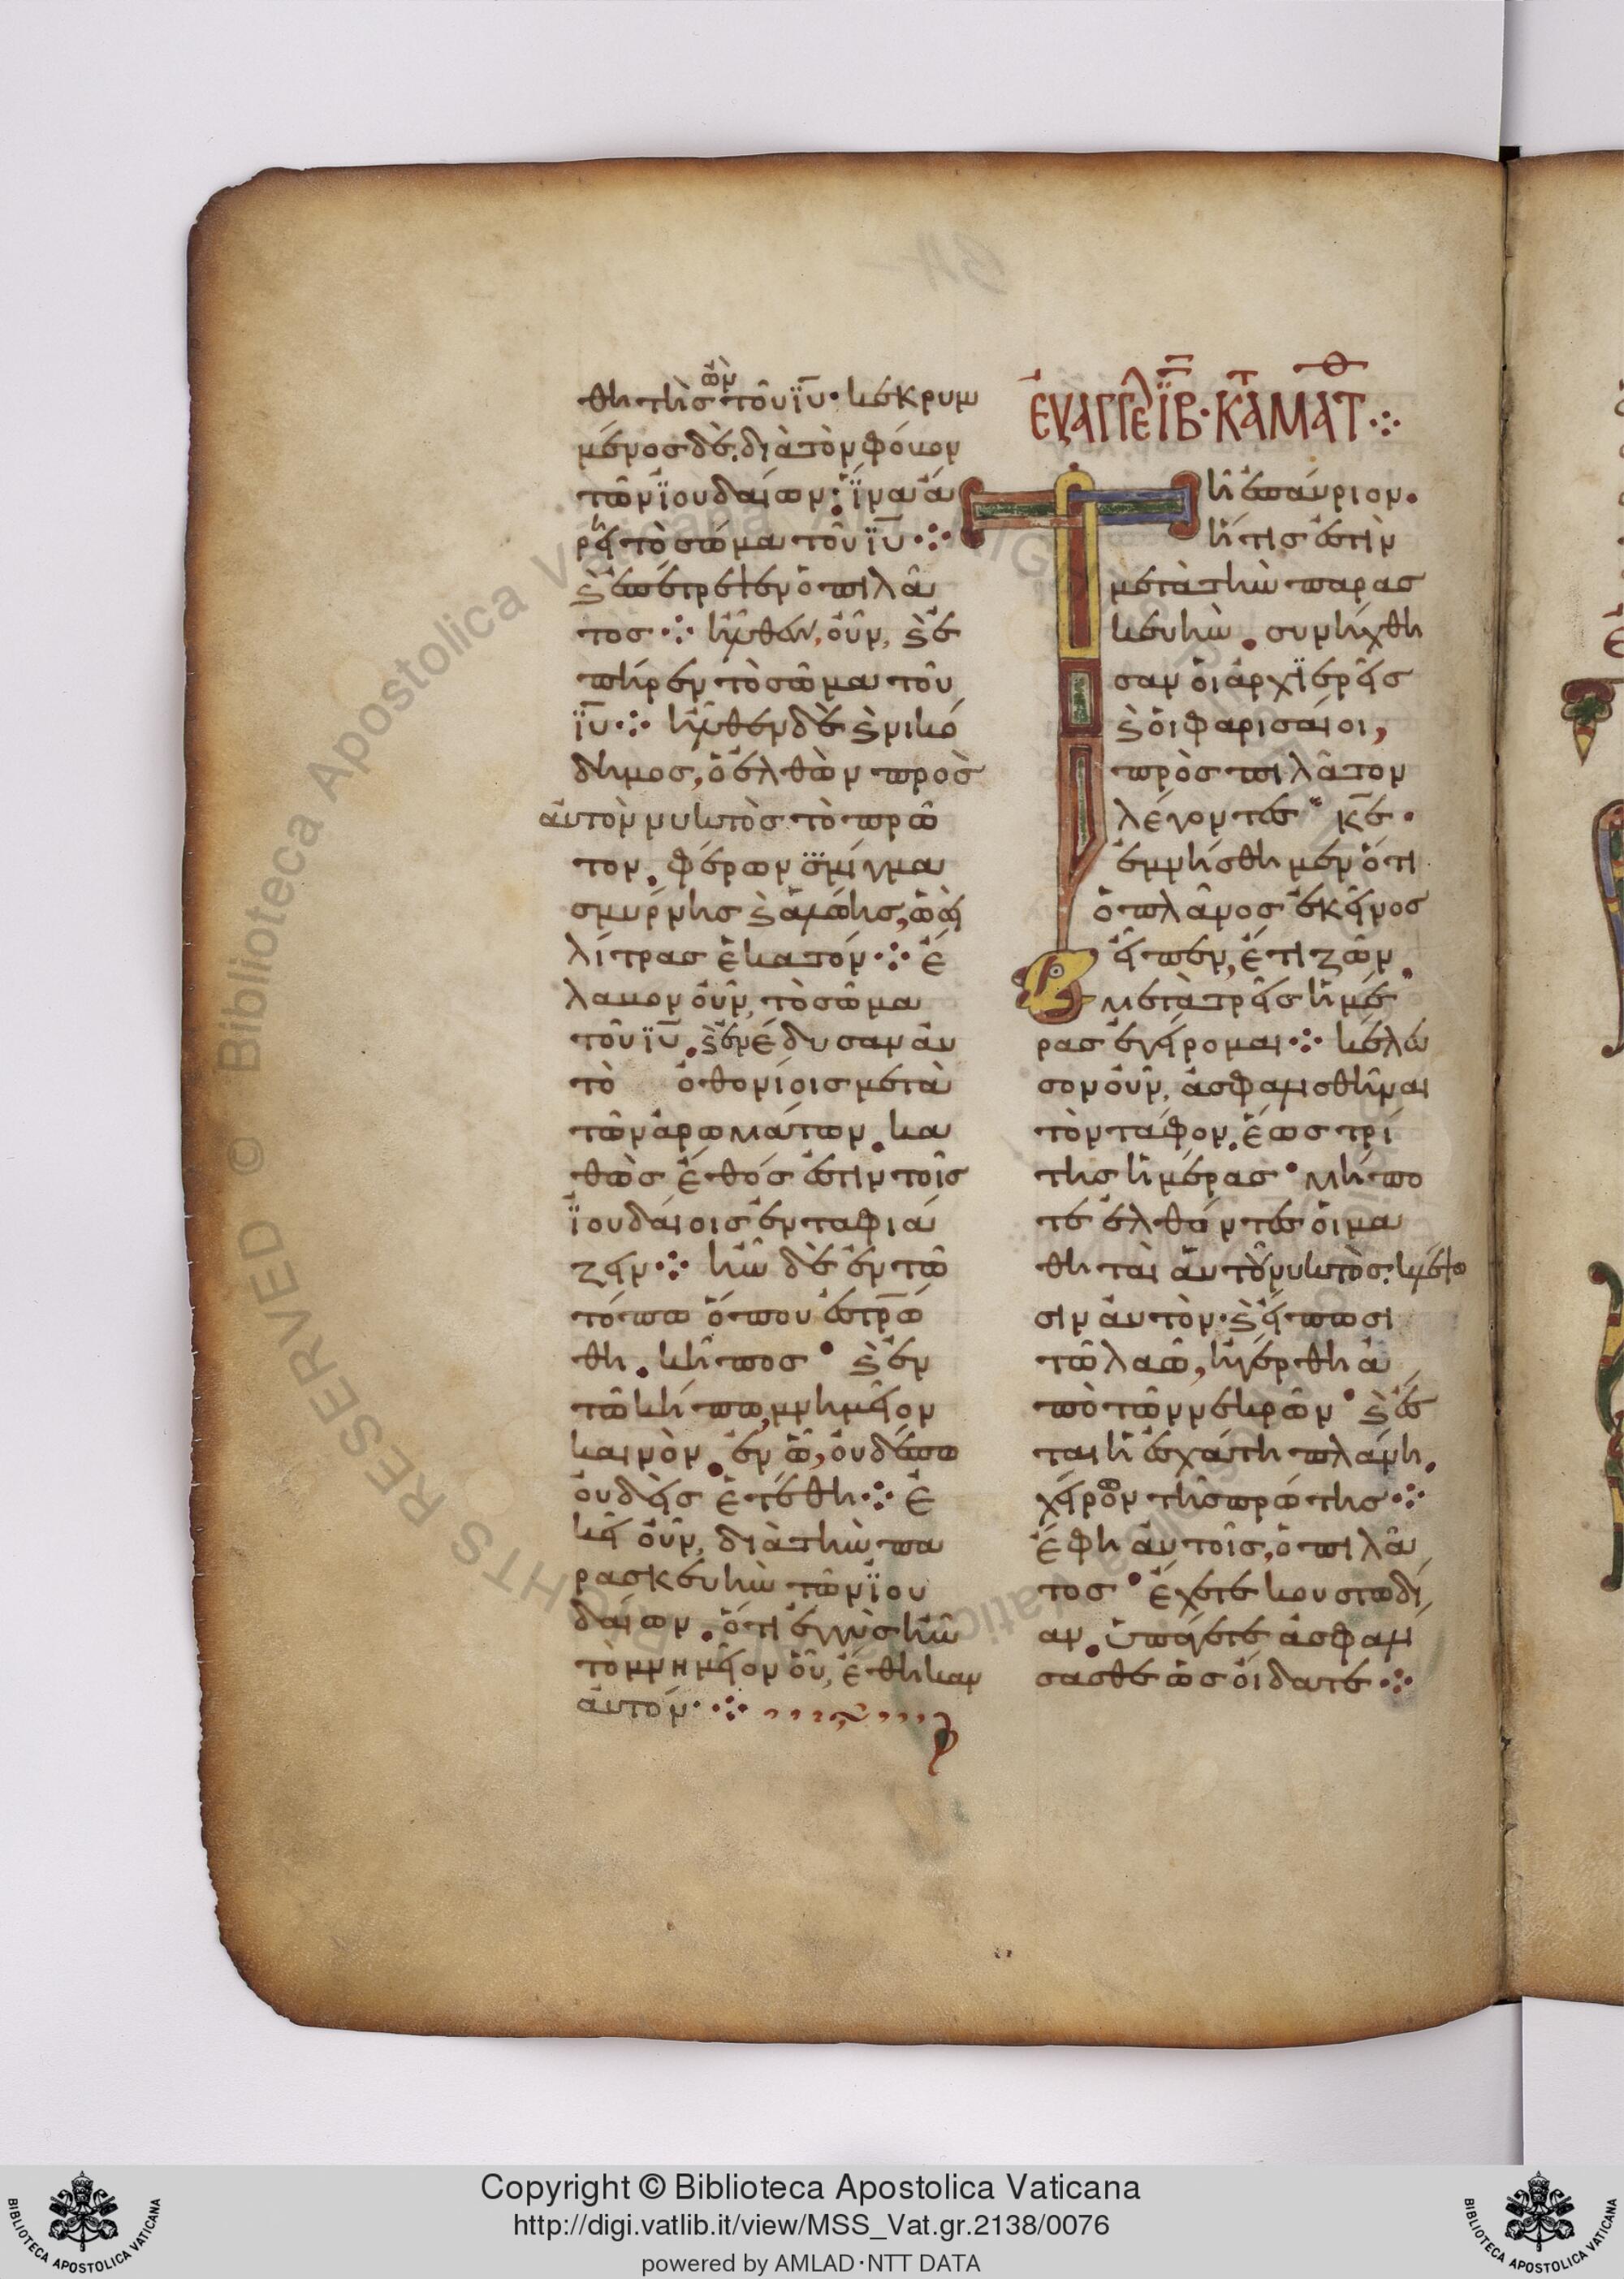 θητὴσ ὢν τοῦ ϊῦ· κεκρυμ
μένος δὲ, διὰ τὸν φόβον
τῶν ϊουδαίων· ἵνα ἄ
ρῃ τὸ σῶμα τοῦ ϊῦ·
ϗ ἐπέτρεψεν ὁ πιλᾶ
τος· ἦλθεν, οὖν, ϗ ἐ
πῆρεν τὸ σῶμα τοῦ
ϊῦ· ἦλθεν δὲ ϗ νικό
δημος, ὁ ἐλθὼν πρὸς
αὐτὸν νυκτὸς τὸ πρῶ
τον. φέρων σμίγμα
σμύρνης ϗ ἀλώης, ὡσεὶ
λίτρας ἑκατόν· ἔ
λαβον οὖν, τὸ σῶμα
τοῦ ϊῦ. ϗ ἐνέδυσαν αὐ
τὸ ὀθονίοις μετὰ
τῶν ἀρωμάτων. κα
θὼς ἔθος ἐστὶν τοῖς
ϊουδαίοις ἐνταφιά
ζειν· ἦν δὲ ἐν τῶ
τόπω ὅπου ἐστρ̅ώ
θη. κῆπος· ϗ ἐν
τῶ κήπω, μνημεῖον
καινὸν. ἐν ὧ, οὐδέπω
οὐδεὶς ἐτέθη· ἐ
κεῖ οὖν, διὰ τὴν πα
ρασκευὴν τῶν ϊου
δαίων. ὅτι ἐγγὺς ἦν
τὸ μνημεῖον οὗ, ἔθηκαν
αὐτόν·
ΕΥΑΓΓΕΛ ΙΒ· ΚΑΤ ΜΑΤΘ
Τῆ ἐπαύριον.
ἥτις ἐστὶν
μετὰ τὴν παρασ
κευὴν. συνήχθη
σαν οἱ ἀρχϊερεῖς
ϗ οἱ φαρισαῖοι,
πρὸς πιλᾶτον
λέγοντες· κ̅ε·
ἐμνήσθημεν ὅτι
ὁ πλάνος ἐκεῖνος
εἶπεν, ἔτι ζῶν.
μετὰ τρεῖς ἡμέ
ρας ἐγείρομαι· κέλευ
σον οὖν, ἀσφαλισθῆναι
τὸν τάφον. ἕως τρί
της ἡμέρας· μήπο
τε ἐλθόντες οἱ μα
θηταὶ αὐτοῦ νυκτὸς. κλέψω
σιν αὐτὸν· ϗ εἴπωσι
τῶ λαῶ, ἠγέρθη ἀ
πὸ τῶν νεκρῶν· ϗ ἔσ
ται ἡ ἐσχάτη πλάνη.
χείρων τῆς πρώτης·
ἔφη αὐτοῖς, ὁ πιλᾶ
τος· ἔχετε κουστωδί
αν. ὑπάγετε ἀσφαλί
σασθε ὡς οἴδατε·
Copyright © Biblioteca Apostolica Vaticana
http://digi.vatlib.it/view/MSS_Vat.gr.2138/0076
powered by AMLAD·NTT DATA
BIBLIOTECA APOSTOLICA VATICANA
BIBLIOTECA APOSTOLICA VATICANA